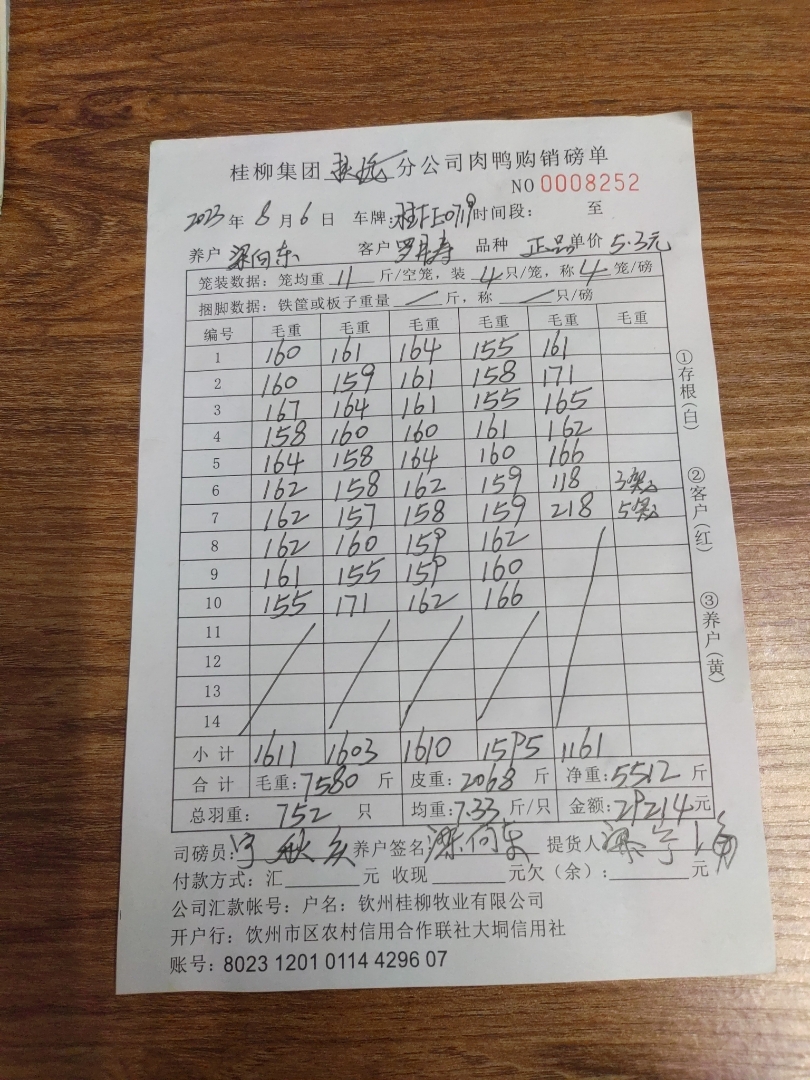 桂柳集团 分公司肉鸭购销磅单
NO 0008252
2023年8月6日 车牌: 时间段： 至
养户 梁向东 客户 罗 寿 品种 正品 单价 5.3元
笼装数据：笼均重 11 斤/空笼，装 4 只/笼，称 4 笼/磅
捆脚数据：铁筐或板子重量 / 斤，称 / 只/磅
编号 毛重 毛重 毛重 毛重 毛重 毛重
1 160 161 164 155 161
2 160 159 161 158 171
3 167 164 161 155 165
4 158 160 160 161 162
5 164 158 164 160 166
6 162 158 162 159 118 3
7 162 157 158 159 218 5
8 162 160 159 162
9 161 155 159 160
10 155 171 162 166
11
12
13
14
小计 1611 1603 1610 1595 1161
合计 毛重：7580 斤 皮重：2068 斤 净重：5512 斤
总羽重： 752 只 均重：7.33 斤/只 金额：29214元
司磅员： 养户签名 梁向东 提货人
付款方式：汇 元 收现 元欠（余）： 元
公司汇款帐号：户名：钦州桂柳牧业有限公司
开户行：饮州市区农村信用合作联社大垌信用社
账号：8023 1201 0114 4296 07
①存根(白)
②客户(红)
③养户(黄)